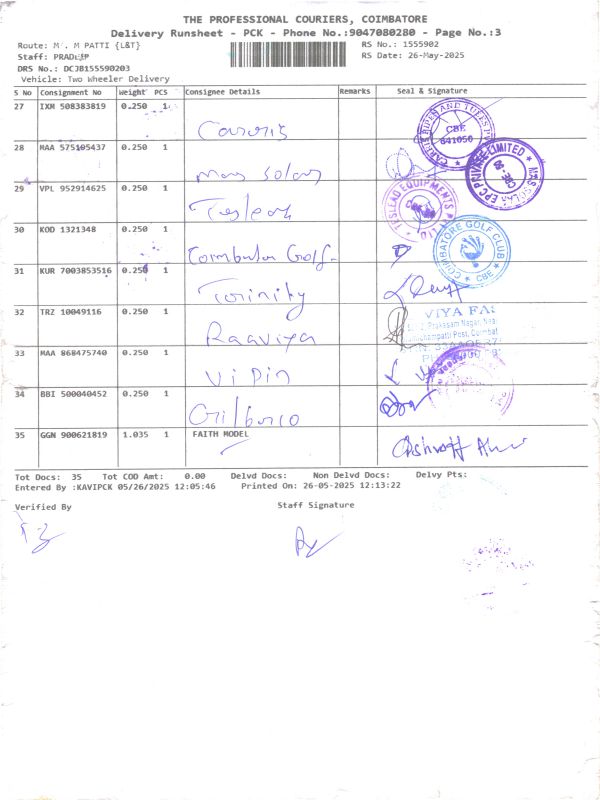 THE PROFESSIONAL COURIERS, COIMBATORE
Delivery Runsheet - PCK - Phone No.:9047080280 - Page No.:3
Route: M. M PATTI {L&T}
RS No.: 1555902
Staff: PRADEEP
RS Date: 26-May-2025
DRS No.: DCJB155590203
Vehicle: Two Wheeler Delivery
S No Consignment No Weight PCS Consignee Details Remarks Seal & Signature
27 IXM 508383819 0.250 1
28 MAA 575105437 0.250 1 Mas Solar
29 VPL 952914625 0.250 1
30 KOD 1321348 0.250 1 Coimbatore Golf-
31 KUR 7003853516 0.250 1 Torinity
32 TRZ 10049116 0.250 1 Raaviya
33 MAA 868475740 0.250 1 Vipin
34 BBI 500040452 0.250 1 Gilbarco
35 GGN 900621819 1.035 1 FAITH MODEL
CBE
641050
EPC PRIVATE LIMITED
TESLEAD EQUIPMENTS
COIMBATORE GOLF CLUB
CBE
VIYA FAS
Prakasam Nagar, Nea
Post, Coimbat
Tot Docs: 35 Tot COD Amt: 0.00 Delvd Docs: Non Delvd Docs: Delvy Pts:
Entered By :KAVIPCK 05/26/2025 12:05:46 Printed On: 26-05-2025 12:13:22
Verified By
Staff Signature